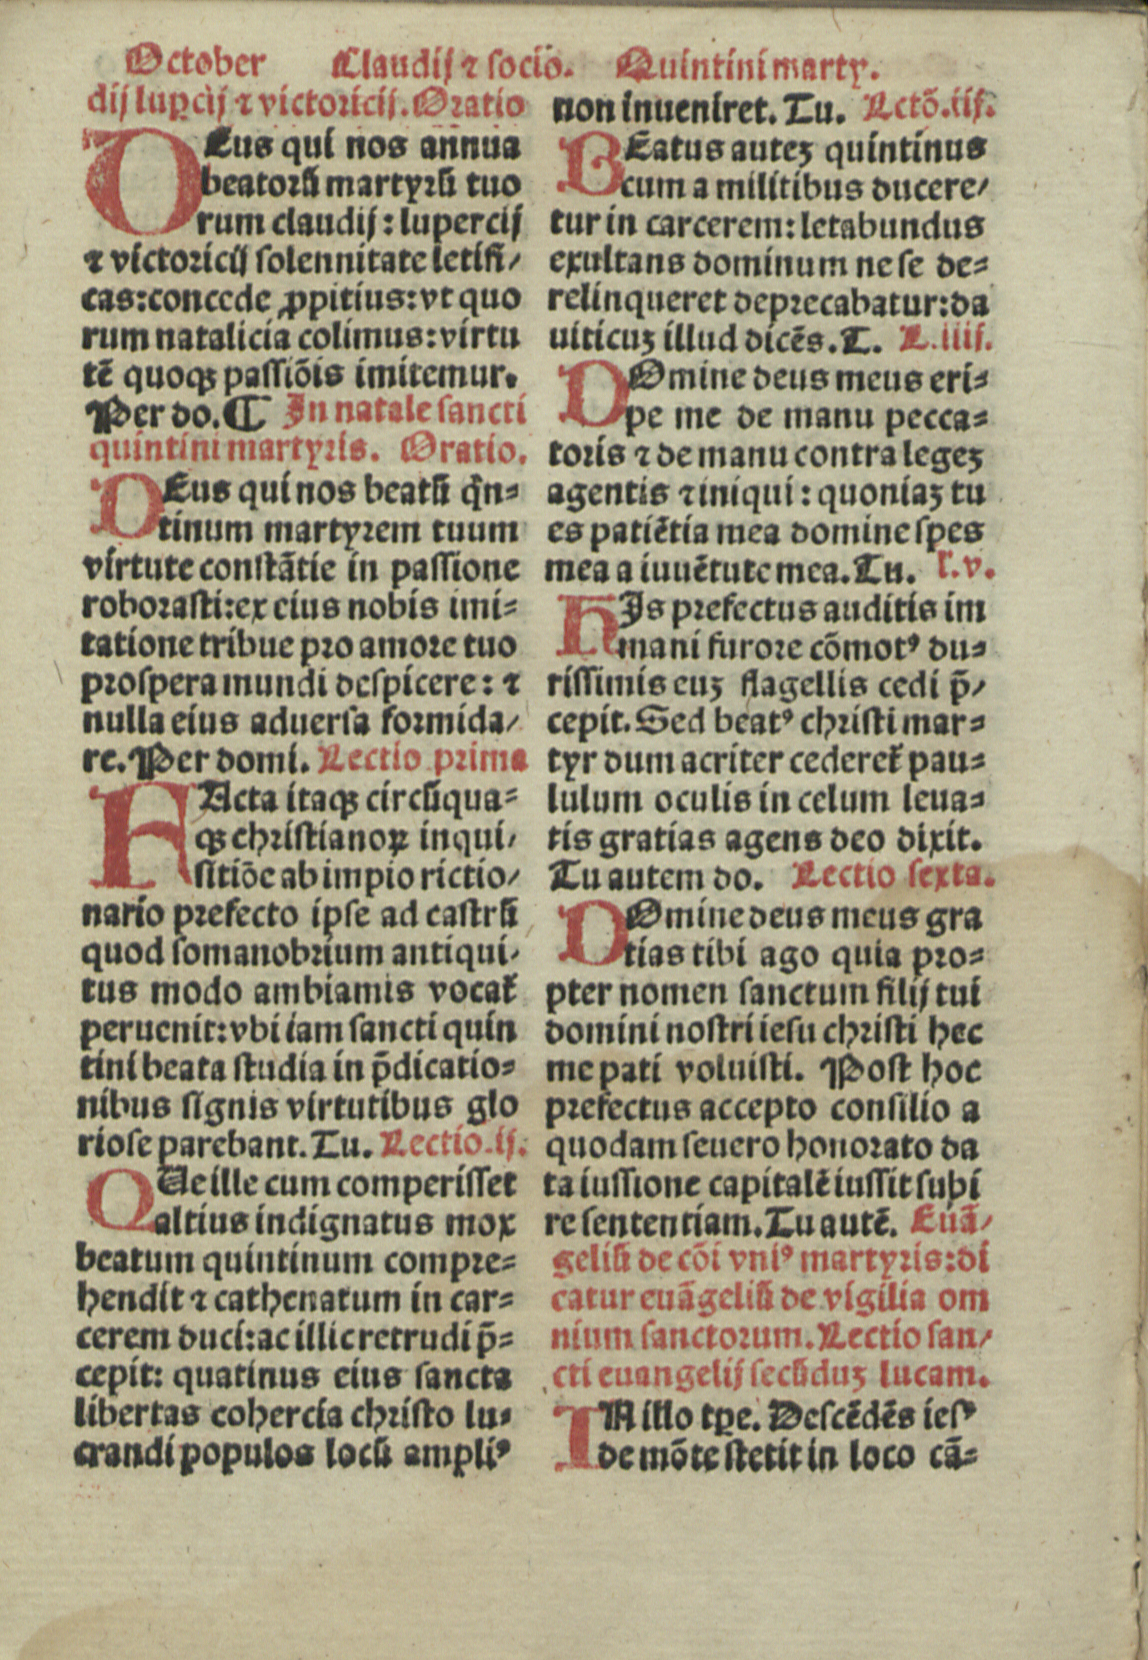 October Claudij ⁊ socio. Quintini marty.
dij lupcij ⁊ victoricij. Oratio
DEus qui nos annua
beatorū martyrū tuo
rum claudij: lupercij
⁊ victoricij solennitate letifi/
cas: concede ꝓpitius: vt quo
rum natalicia colimus: virtu
tē quoqꝫ passiōis imitemur.
Per do. ¶ In natale sancti
quintini martyris. Oratio.
DEus qui nos beatū q̄n-
tinum martyrem tuum
virtute constātie in passione
roborasti: ex eius nobis imi-
tatione tribue pro amore tuo
prospera mundi despicere: ⁊
nulla eius aduersa formida/
re. Per domi. Lectio prima
FActa itaqꝫ circūqua-
qꝫ christianoꝝ inqui/
sitiōe ab impio rictio/
nario prefecto ipse ad castrū
quod somanobrium antiqui/
tus modo ambiamis vocat̄
peruenit: vbi iam sancti quin
tini beata studia in p̄dicatio-
nibus signis virtutibus glo
riose parebant. Tu. Lectio.ij.
QUe ille cum comperisset
altius indignatus mox
beatum quintinum compre-
hendit ⁊ cathenatum in car-
cerem duci: ac illic retrudi p̄-
cepit: quatinus eius sancta
libertas cohercia christo lu-
crandi populos locū ampliꝰ
non inueniret. Tu. Lctō.iij.
BEatus auteꝫ quintinus
cum a militibus ducere/
tur in carcerem: letabundus
exultans dominum ne se de-
relinqueret deprecabatur: da
uiticuꝫ illud dicēs. T. L.iiij.
DOmine deus meus eri-
pe me de manu pecca-
toris ⁊ de manu contra legeꝫ
agentis ⁊ iniqui: quoniaꝫ tu
es patiētia mea domine spes
mea a iuuētute mea. Tu. l.v.
HIs prefectus auditis im
mani furore cōmotꝰ du-
rissimis euꝫ flagellis cedi p̄/
cepit. Sed beatꝰ christi mar-
tyr dum acriter cederet̄ pau-
lulum oculis in celum leua-
tis gratias agens deo dixit.
Tu autem do. Lectio sexta.
DOmine deus meus gra
tias tibi ago quia pro-
pter nomen sanctum filij tui
domini nostri iesu christi hec
me pati voluisti. Post hoc
prefectus accepto consilio a
quodam seuero honorato da
ta iussione capitalē iussit subi
re sententiam. Tu autē. Euā/
geliū de cōi vniꝰ martyris: di
catur euāgeliū de vigilia om
nium sanctorum. Lectio san/
cti euangelij secūduꝫ lucam.
IN illo tp̄e. Descēdēs iesꝰ
de mōte stetit in loco cā-